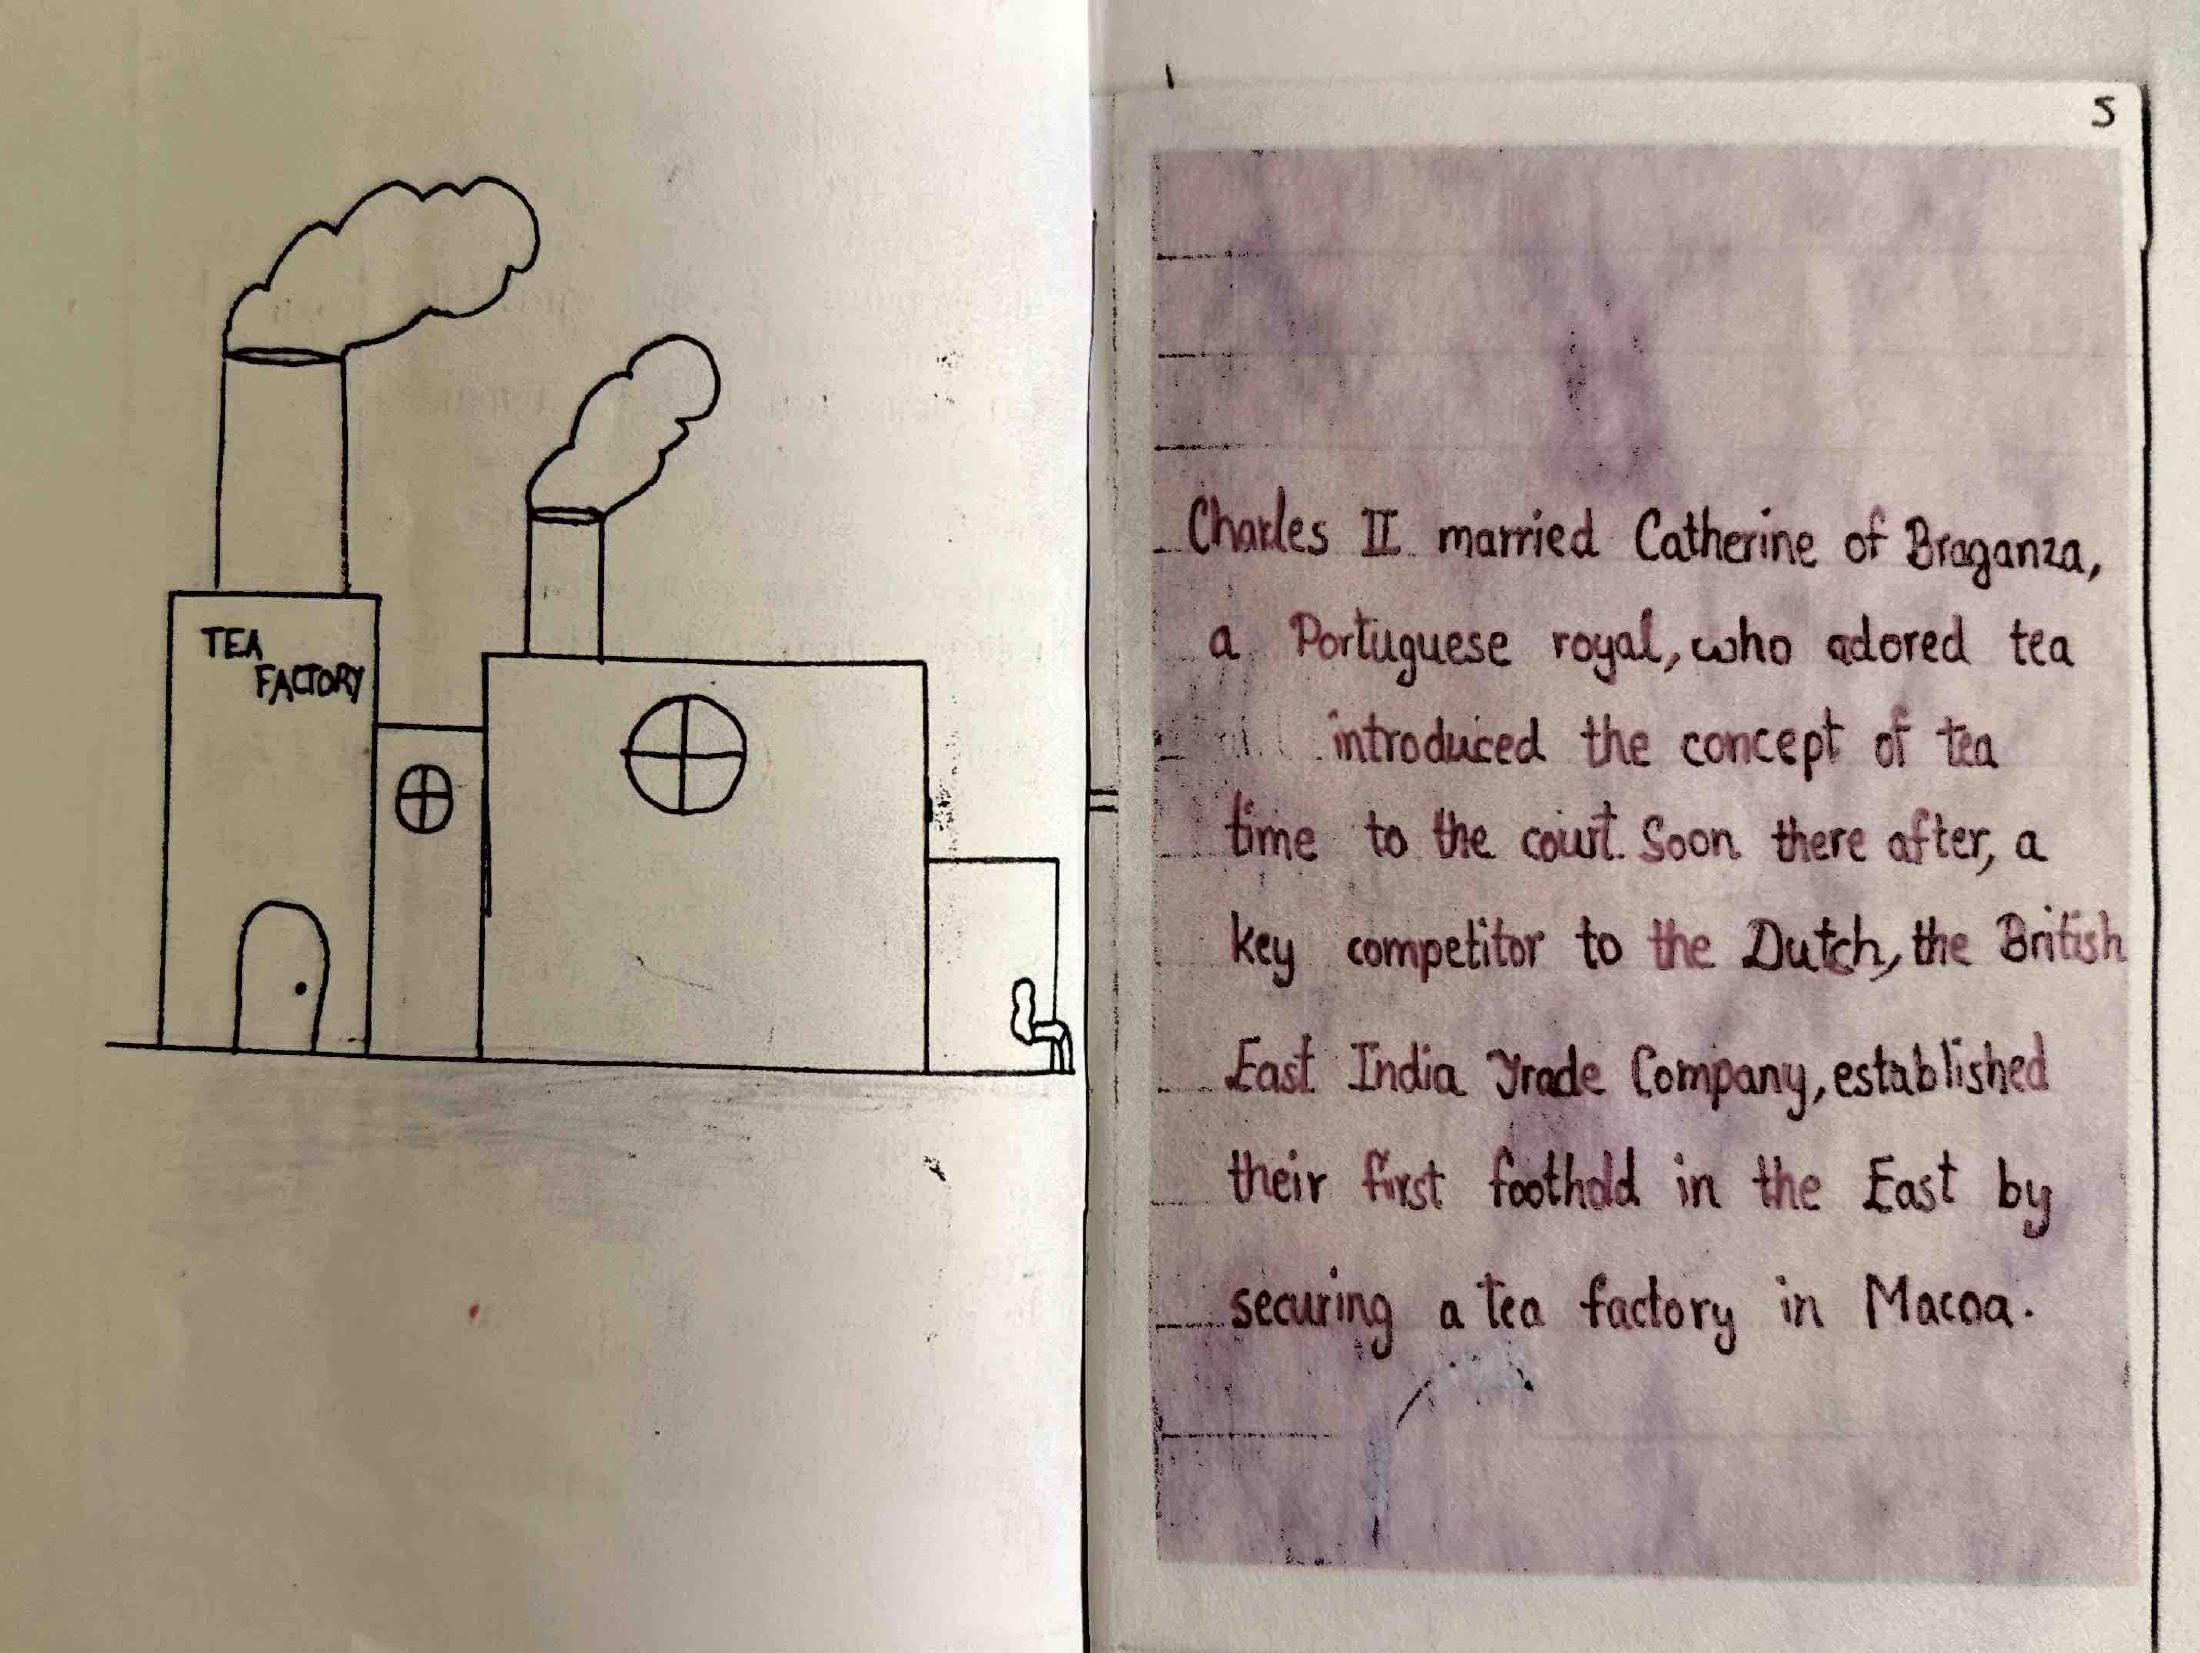 TEA
FACTORY
5
Charles II married Catherine of Braganza,
a Portuguese royal, who adored tea
introduced the concept of tea
time to the court. Soon there after, a
key competitor to the Dutch, the British
East India Trade Company, established
their first foothold in the East by
securing a tea factory in Macoa.